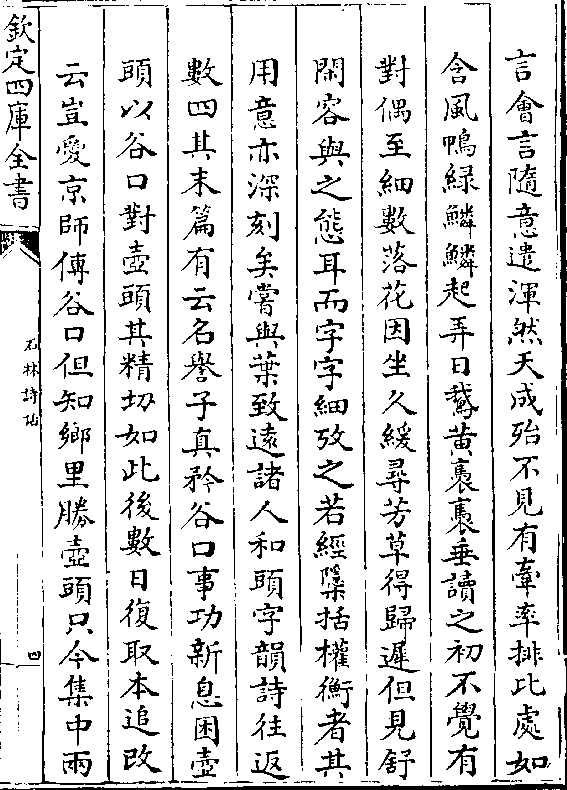 言會言隨意遣渾然天成殆不見有牽率排比處如
含風鴨綠鱗鱗起弄日鵞黃裊裊垂讀之初不覺有
對偶至細數落花因坐久緩尋芳草得歸遲但見舒
閑容與之態耳而字字細攷之若經檃括權衡者其
用意亦深刻矣嘗與葉致遠諸人和頭字韻詩往返
數四其末篇有云名譽子真矜谷口事功新息困壺
頭以谷口對壺頭其精切如此後數日復取本追改
云豈愛京師傳谷口但知鄉里勝壺頭只今集中兩
欽定四庫全書
石林詩話
四